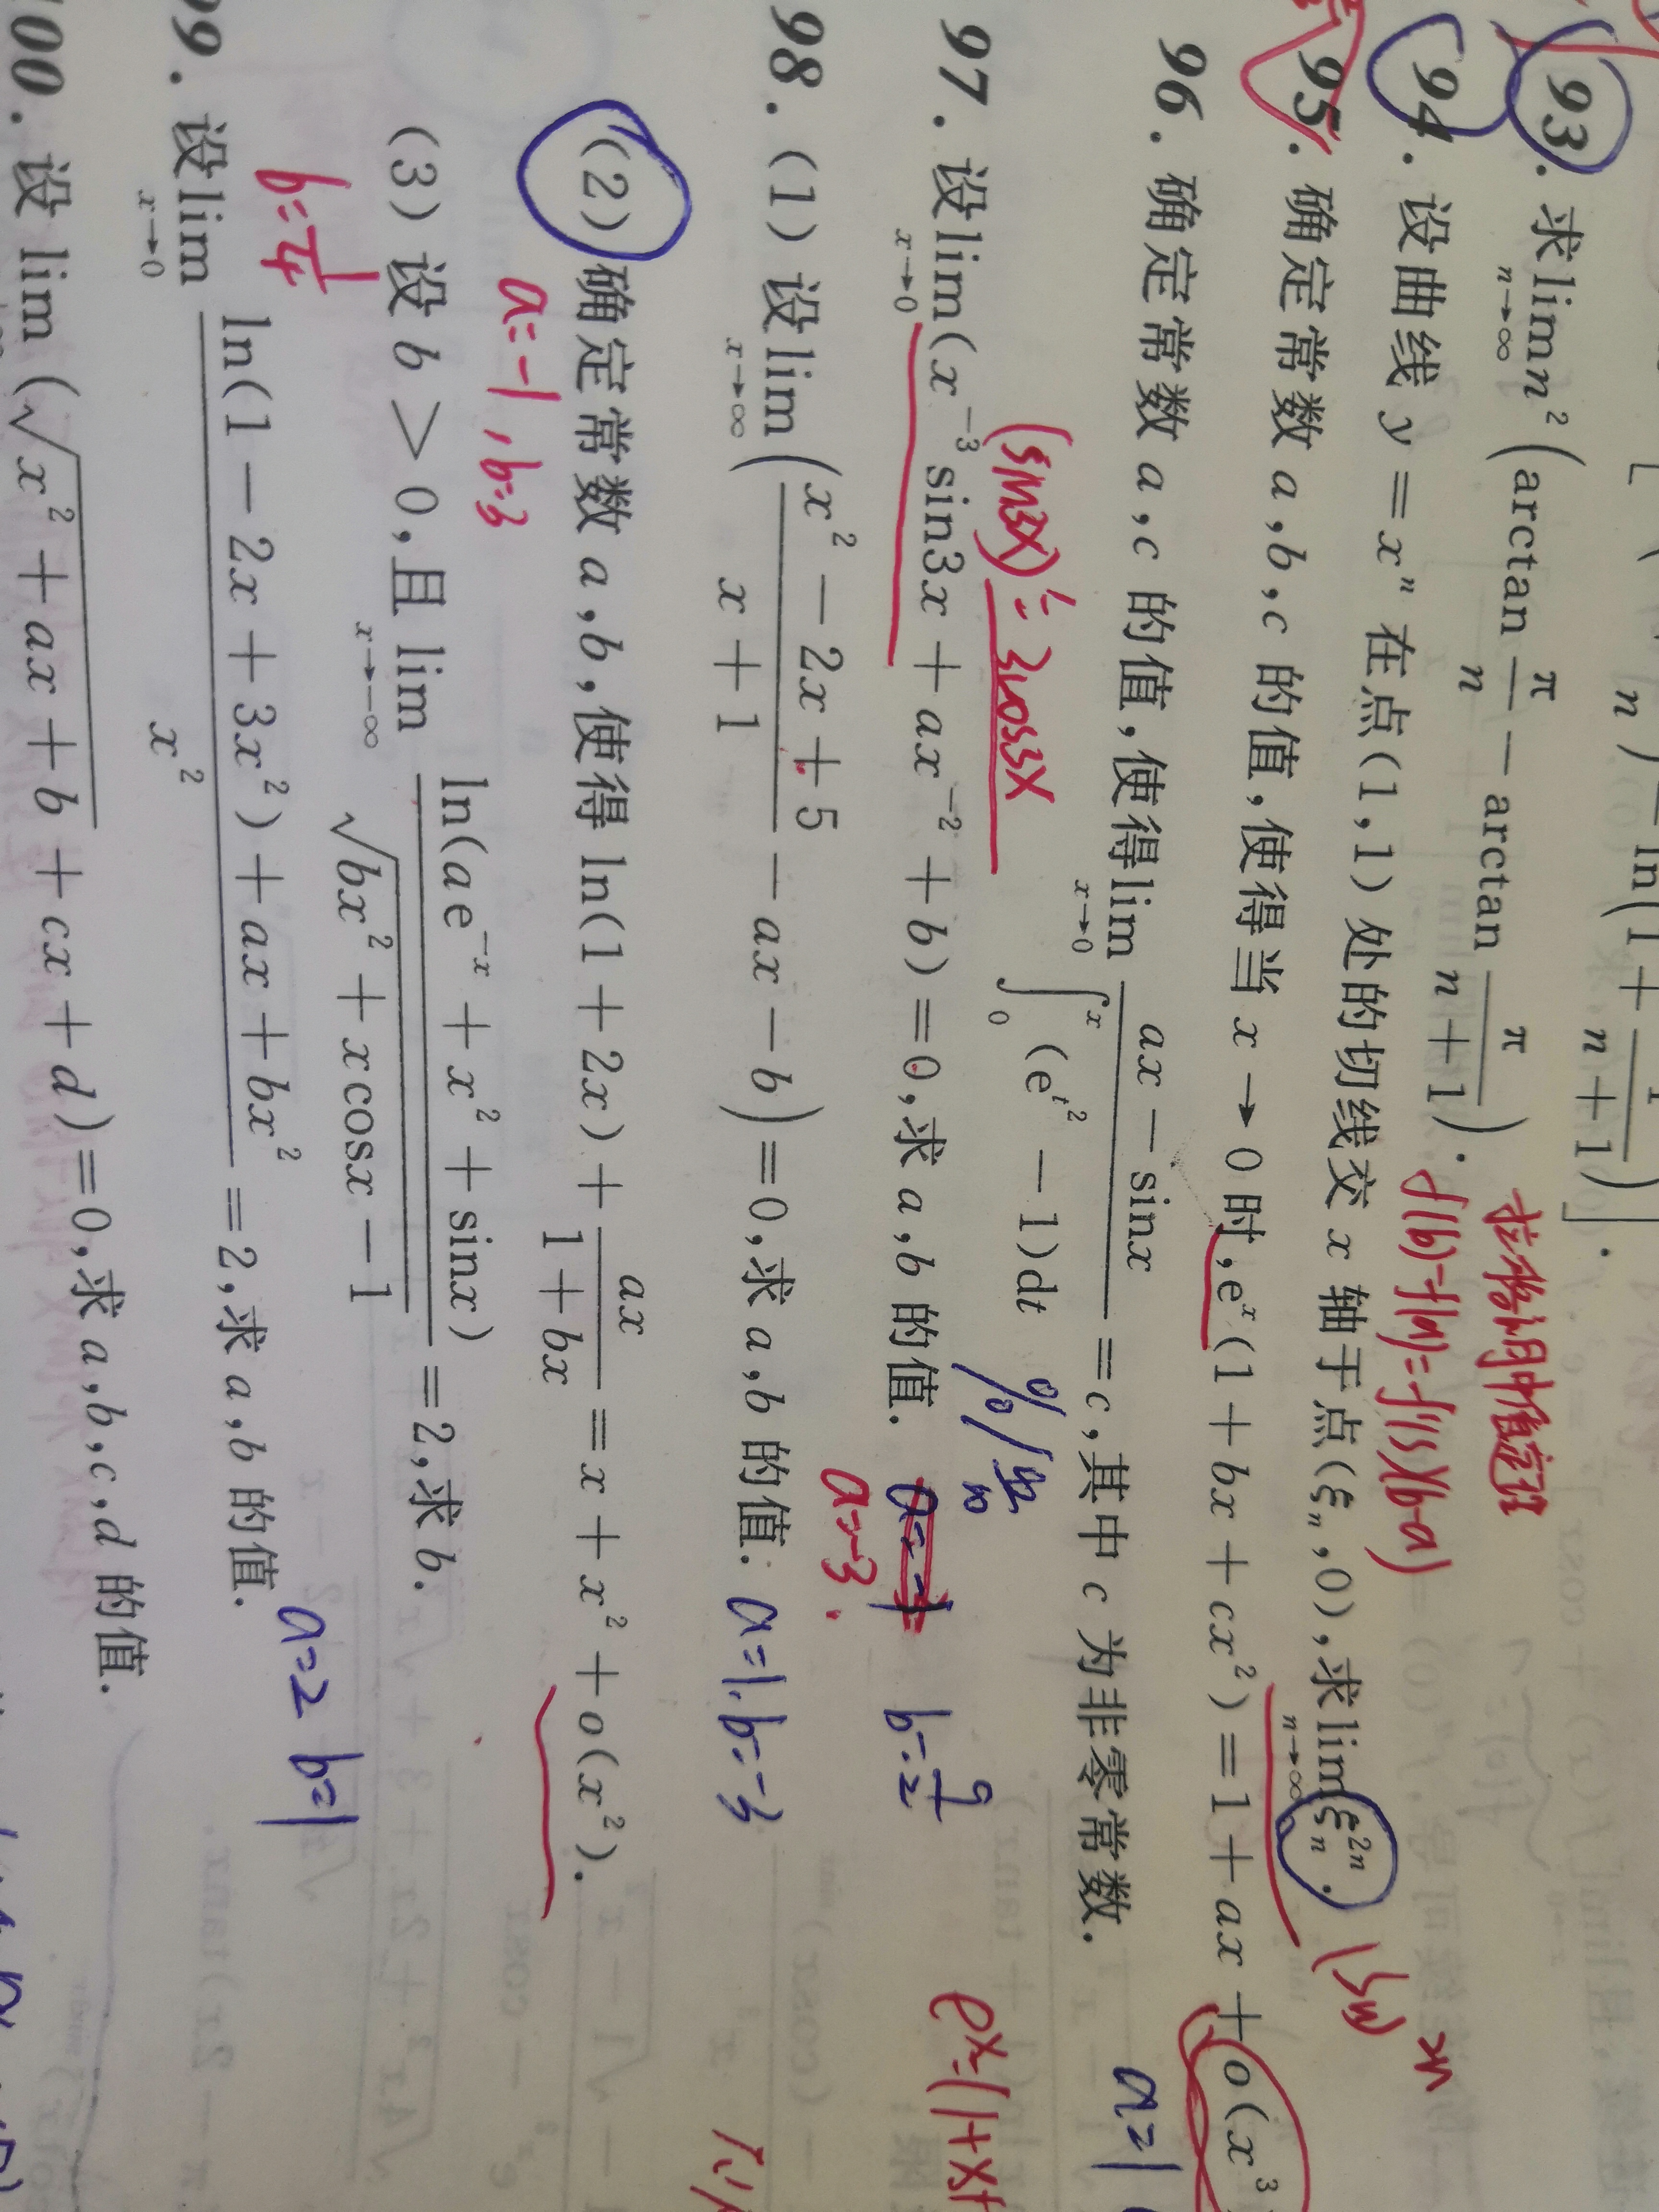 n) - ln(1 + 1/(n+1))].
93. 求lim n→∞ n²(arctan π/n - arctan π/(n+1)). 拉格朗日中值定理
f(b)-f(a)=f'(ξ)(b-a)
94. 设曲线 y = xⁿ 在点(1,1)处的切线交 x 轴于点(ξₙ,0),求lim n→∞ ξₙ²ⁿ.
95. 确定常数 a,b,c 的值,使得当 x→0 时,eˣ(1 + bx + cx²) = 1 + ax + o(x³)
96. 确定常数 a,c 的值,使得lim x→0 (ax - sinx)/(∫₀ˣ(e^(t²) - 1)dt) = c,其中 c 为非零常数. a=1
(sin3x)'=3cos3x
97. 设lim x→0 (x⁻³sin3x + ax⁻² + b) = 0,求 a,b 的值. b=9/2
a=-3.
98. (1) 设lim x→∞ ((x² - 2x + 5)/(x + 1) - ax - b) = 0,求 a,b 的值: a=1. b=-3
(2) 确定常数 a,b,使得 ln(1 + 2x) + ax/(1 + bx) = x + x² + o(x²).
a=-1, b=3
(3) 设 b > 0,且 lim x→-∞ ln(ae⁻ˣ + x² + sinx)/√(bx² + xcosx - 1) = 2,求 b.
b=1/4
99. 设lim x→0 (ln(1 - 2x + 3x²) + ax + bx²)/x² = 2,求 a,b 的值. a=2 b=1
100. 设 lim (√(x² + ax + b) + cx + d) = 0,求 a,b,c,d 的值.